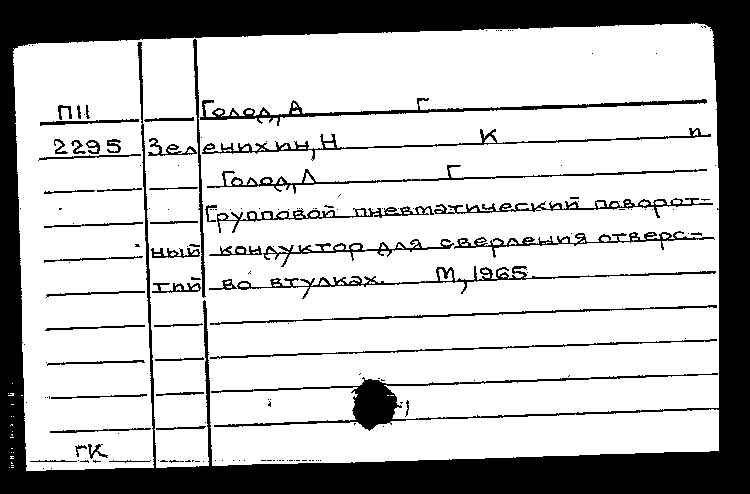 П11 Голод, А Г
2295 Зеленихин, Н К п
Голод, Л Г
Групповой пневматический поворот-
ный кондуктор для сверления отверс-
тий во втулках. М, 1965.
ГК